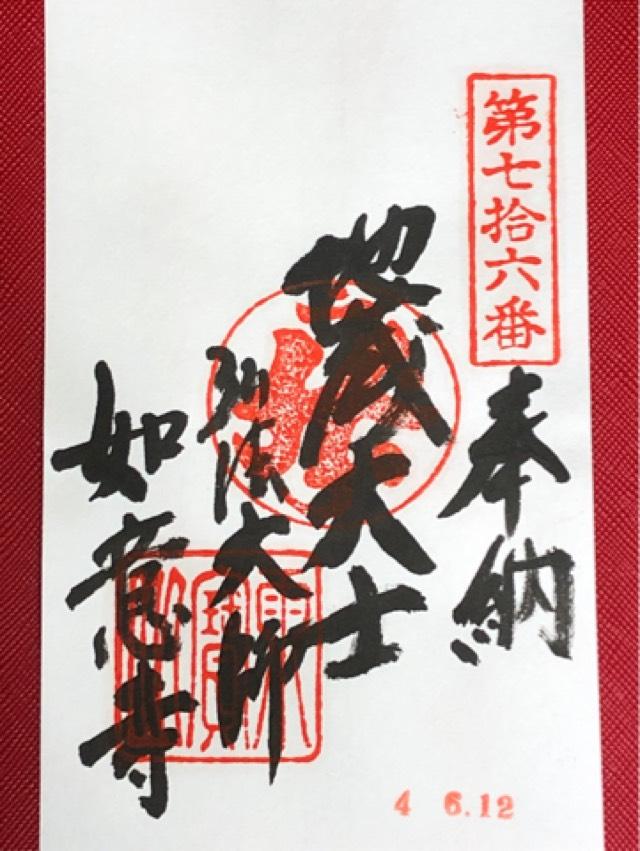 第七拾六番
奉納
地蔵大士
弘法大師
如意寺
4 6.12